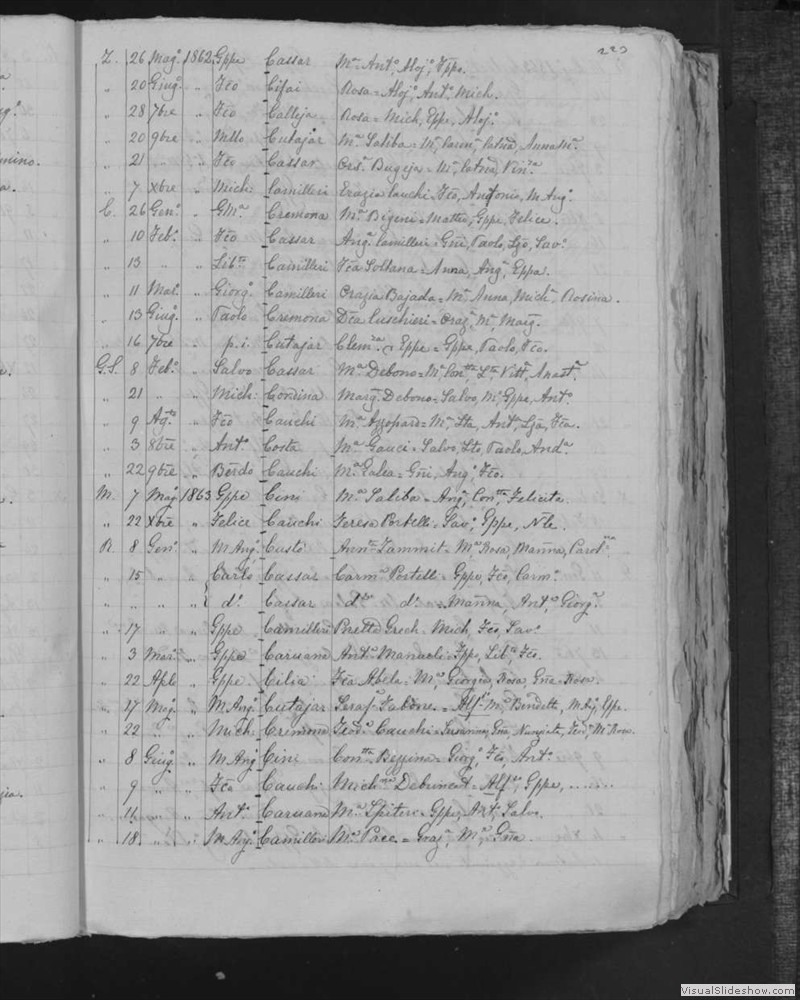 223
Z. 26 Magº. 1862 Gppe Cassar Mª. Antº, Alojº, Gppe.
„ 20 Giugº. „ Fco Cifai Rosa = Alojº, Antº, Mich.
„ 28 7bre „ Fco Calleja Rosa = Mich, Gppe, Alojº.
„ 20 9bre „ Mllo Cutajar Mª Saliba = Mª Carmª, Catna, Anna Mª.
„ 21 „ „ Fco Cassar Orsª Bugeja = Mª, Catna, Vinza
„ 7 Xbre „ Mich: Camilleri Grazia Cauchi = Fco, Antonio, M Angº.
C. 26 Genº. „ GMª Cremona Mª Bigeni = Matteo, Gppe, Felice.
„ 10 Febº. „ Fco Cassar Angª Camilleri = Gni, Paolo, Lzo, Savº.
„ 13 „ „ Libto Camilleri Fca Soltana = Anna, Angª, Gppa.
„ 11 Marº. „ Giorgº. Camilleri Grazia Bajada = Mª Anna, Michª, Rosina.
„ 13 Giug. „ Paolo Cremona Dca Cuschieri = Grazª, Mª, Marg.
„ 16 7bre „ p.i. Cutajar Clemza. Gppe = Gppe, Paolo, Fco.
G.S. 8 Febº. „ Salvo Cassar Mª Debono = Mª Contta, Lta, Vittª, Anastª.
„ 21 „ „ Mich: Cordina Margª Debono = Salvo, Mª, Gppe, Antº.
„ 9 Agto „ Fco Cauchi Mª Azzopard = Mª, Lta, Antª, Lza, Fca.
„ 3 8bre „ Antº. Costa Mª Gauci = Salvo, Lto, Paolo, Andª.
„ 22 9bre „ Berdo Cauchi Mª Galea = Gni, Angº, Fco.
M. 7 Magº 1863 Gppe Cini Mª Saliba = Angª, Contta, Felicita.
„ 22 Xbre „ Felice Cauchi Teresa Portelli = Savº, Gppe, Nle.
R. 8 Genº. „ M Angº. Custo Annta Zammit = Mª Rosa, Marina, Carolna
„ 15 „ „ Carlo Cassar Carmª Portelli = Gppe, Fco, Carmº.
„ „ „ „ dº. Cassar dta dº. Marina, Antº, Giorgª.
„ 17 „ „ Gppe Camilleri Poretta Grech = Mich, Fco, Savº.
„ 3 Marº. „ Gppe Caruana Antª Manueli = Gppe, Libto, Fco.
„ 22 Aple „ Gppe Cilia Fca Abela = Mª, Giorgia, Rosa, Gne = Rosa.
„ 17 Mag. „ M Angº. Cutajar Serafª Tabone = Alfº, Mª Bendtta, M Angº, Gppe.
„ 22 „ „ Mich: Cremona Teodª Cauchi = Susanna, Gne, Nunziata, Mª Rosa.
„ 8 Giugº „ M Angº Cini Contta Bezzina = Giorgº, Fco, Antº.
„ 9 „ „ Fco Cauchi Michna Debrincat = Alfº, Gppe,
„ 14 „ „ Antº. Caruana Mª Spiteri = Gppe, Antº, Salvo.
„ 18. „ „ M Angº. Camilleri Mª Pace = Grazª, Mª, Gna.